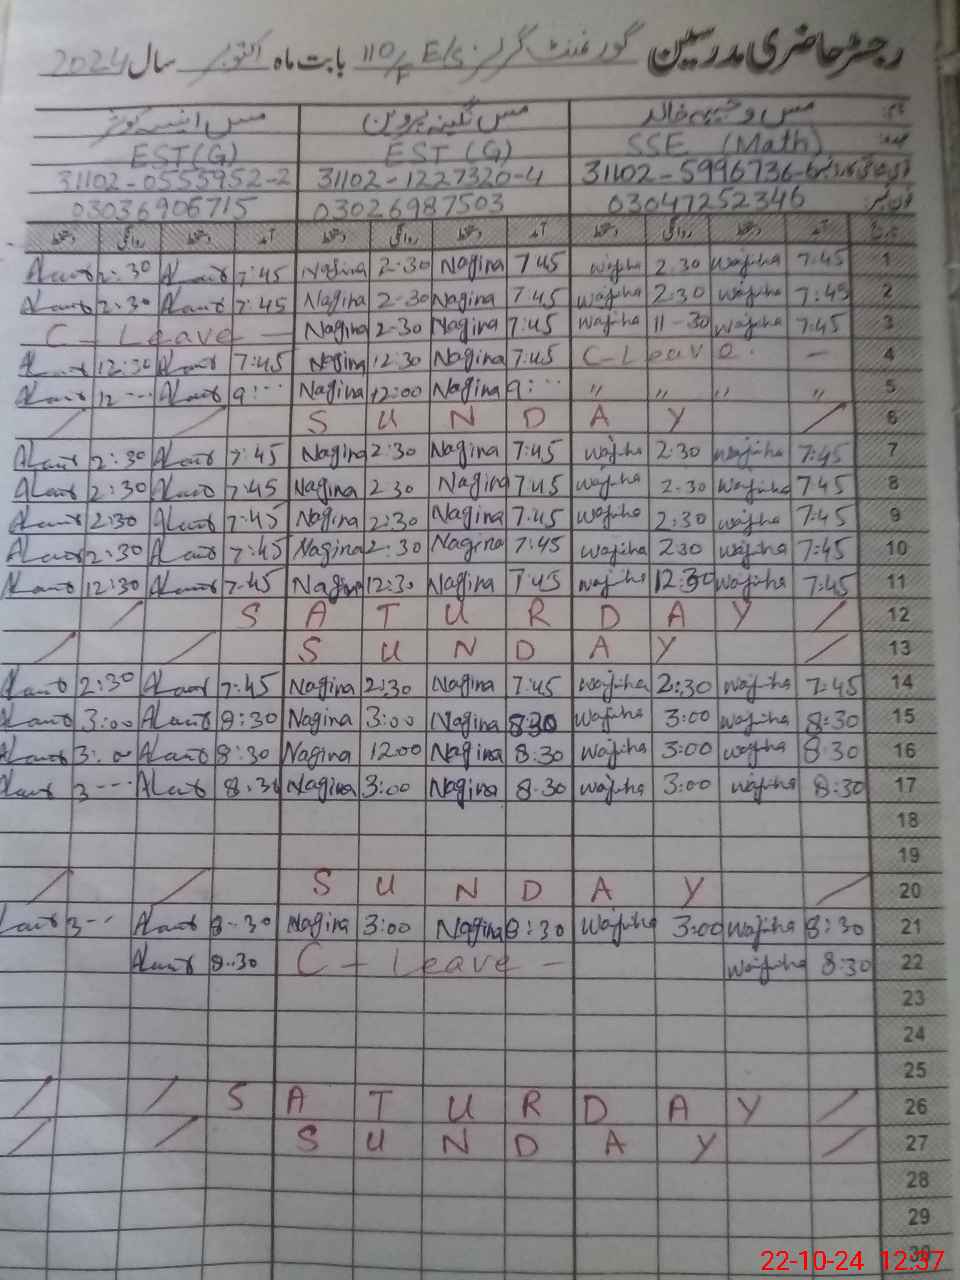 رجسٹر حاضری مدرسین گورنمنٹ گرلز E/S 110/F بابت ماہ اکتوبر سال 2024
نام: مس وجیہہ خالد مس نگینہ پروین مس انیسہ کوثر
عہدہ: SSE (Math) EST (G) EST (G)
31102-5996736-6 31102-1227320-4 31102-0555952-2
فون نمبر: 03047252346 03026987503 03036906715
تاریخ آمد دستخط روانگی دستخط آمد دستخط روانگی دستخط آمد دستخط روانگی دستخط
2:30 7:45 Nagina 2-30 Nagina 7:45 wajiha 2.30 wajiha 7:45 1
2:30 7:45 Nagina 2-30 Nagina 7:45 wajiha 2:30 wajiha 7:45 2
C - Leave - Nagina 2-30 Nagina 7:45 wajiha 11-30 wajiha 7:45 3
12:30 7:45 Nagina 12:30 Nagina 7:45 C-Leave. - 4
12 --- 9:-- Nagina 12:00 Nagina 9:-- " " " " 5
/ / / S U N D A Y / 6
2:30 7:45 Nagina 2:30 Nagina 7:45 wajiha 2:30 wajiha 7:45 7
2:30 7:45 Nagina 2 30 Nagina 7:45 wajiha 2.30 Wajiha 7 45 8
2:30 7:45 Nagina 2:30 Nagina 7:45 wajiha 2:30 wajiha 7:45 9
2:30 7:45 Nagina 2:30 Nagina 7:45 wajiha 2 30 wajiha 7:45 10
12:30 7-45 Nagina 12:30 Nagina 7:45 wajiha 12:30 wajiha 7:45 11
/ / S A T U R D A Y / 12
/ / S U N D A Y / 13
2:30 7:45 Nagina 2:30 Nagina 7:45 wajiha 2:30 wajiha 7:45 14
3:00 8:30 Nagina 3:00 Nagina 8:30 wajiha 3:00 wajiha 8:30 15
3:00 8:30 Nagina 12:00 Nagina 8:30 wajiha 3:00 wajiha 8:30 16
3 --- 8.30 Nagina 3:00 Nagina 8.30 wajiha 3:00 wajiha 8:30 17
18
19
/ / S U N D A Y / 20
3-- 8-30 Nagina 3:00 Nagina 8:30 Wajiha 3:00 wajiha 8:30 21
8..30 C - Leave - wajiha 8:30 22
23
24
25
/ / S A T U R D A Y / 26
/ / S U N D A Y / 27
28
29
30
22-10-24 12:37